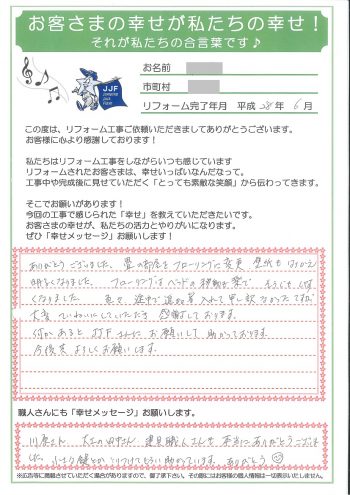 お客さまの幸せが私たちの幸せ！
それが私たちの合言葉です♪
JJF
お名前
市町村
リフォーム完了年月 平成 28 年 6 月
この度は、リフォーム工事ご依頼いただきましてありがとうございます。
お客様に心より感謝しております。
私たちはリフォーム工事をしながらいつも感じています
リフォームされたお客さまは、幸せいっぱいなんだなって。
工事中や完成後に見せていただく「とっても素敵な笑顔」から伝わってきます。
そこでお願いがあります！
今回の工事で感じられた「幸せ」を教えていただきたいです。
お客さまの幸せが、私たちの活力とやりがいになります。
ぜひ「幸せメッセージ」お願いします！
ありがとうございました。畳の部屋をフローリングに変更 壁紙もはりかえ
明るくなりました。フローリングはベッドの移動も楽で そうじもしやす
くなりました。色々 途中で追加を入れて申し訳なかったですが
大変ていねいにしていただき 感謝しております。
何かあると JJFさんに お願いして 助かっております。
今後共 よろしくお願いします。
職人さんにも「幸せメッセージ」お願いします。
大工の田中さん 建具職人さんも 本当にありがとうござい
ました。小さな鍵とか とりつけてもらい助かっています。ありがとう
※広告等に掲載させていただく場合がありますので、御了承下さい。その際にはお客様の個人情報は一切表示いたしません。